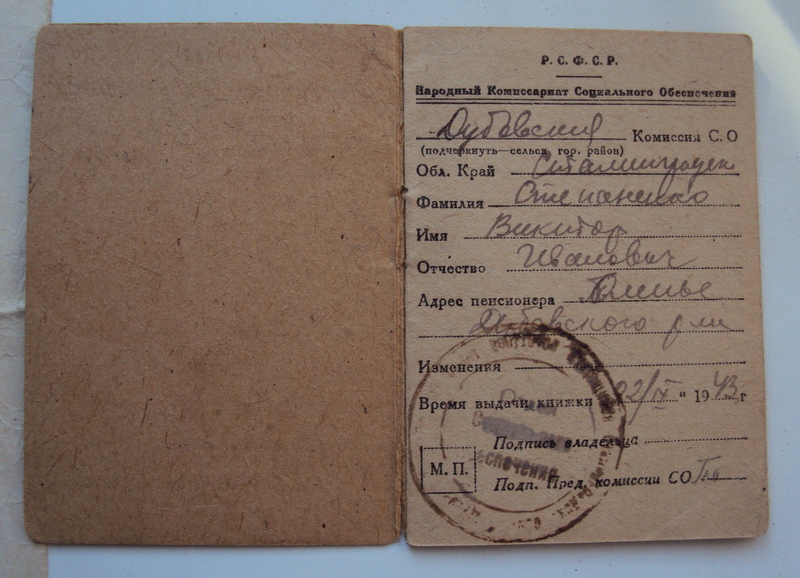 Р. С. Ф. С. Р.
Народный Комиссариат Социального Обеспечения
Дубовский Комиссия С. О
(подчеркнуть—сельск. гор. район)
Обл. Край Сталинградск
Фамилия Степаненко
Имя Викитор
Отчество Иванович
Адрес пенсионера
Дубовского р-на
Изменения
Время выдачи книжки „22/IX“ 1943 г
Подпись владельца
М. П.
Подп. Пред. комиссии СО